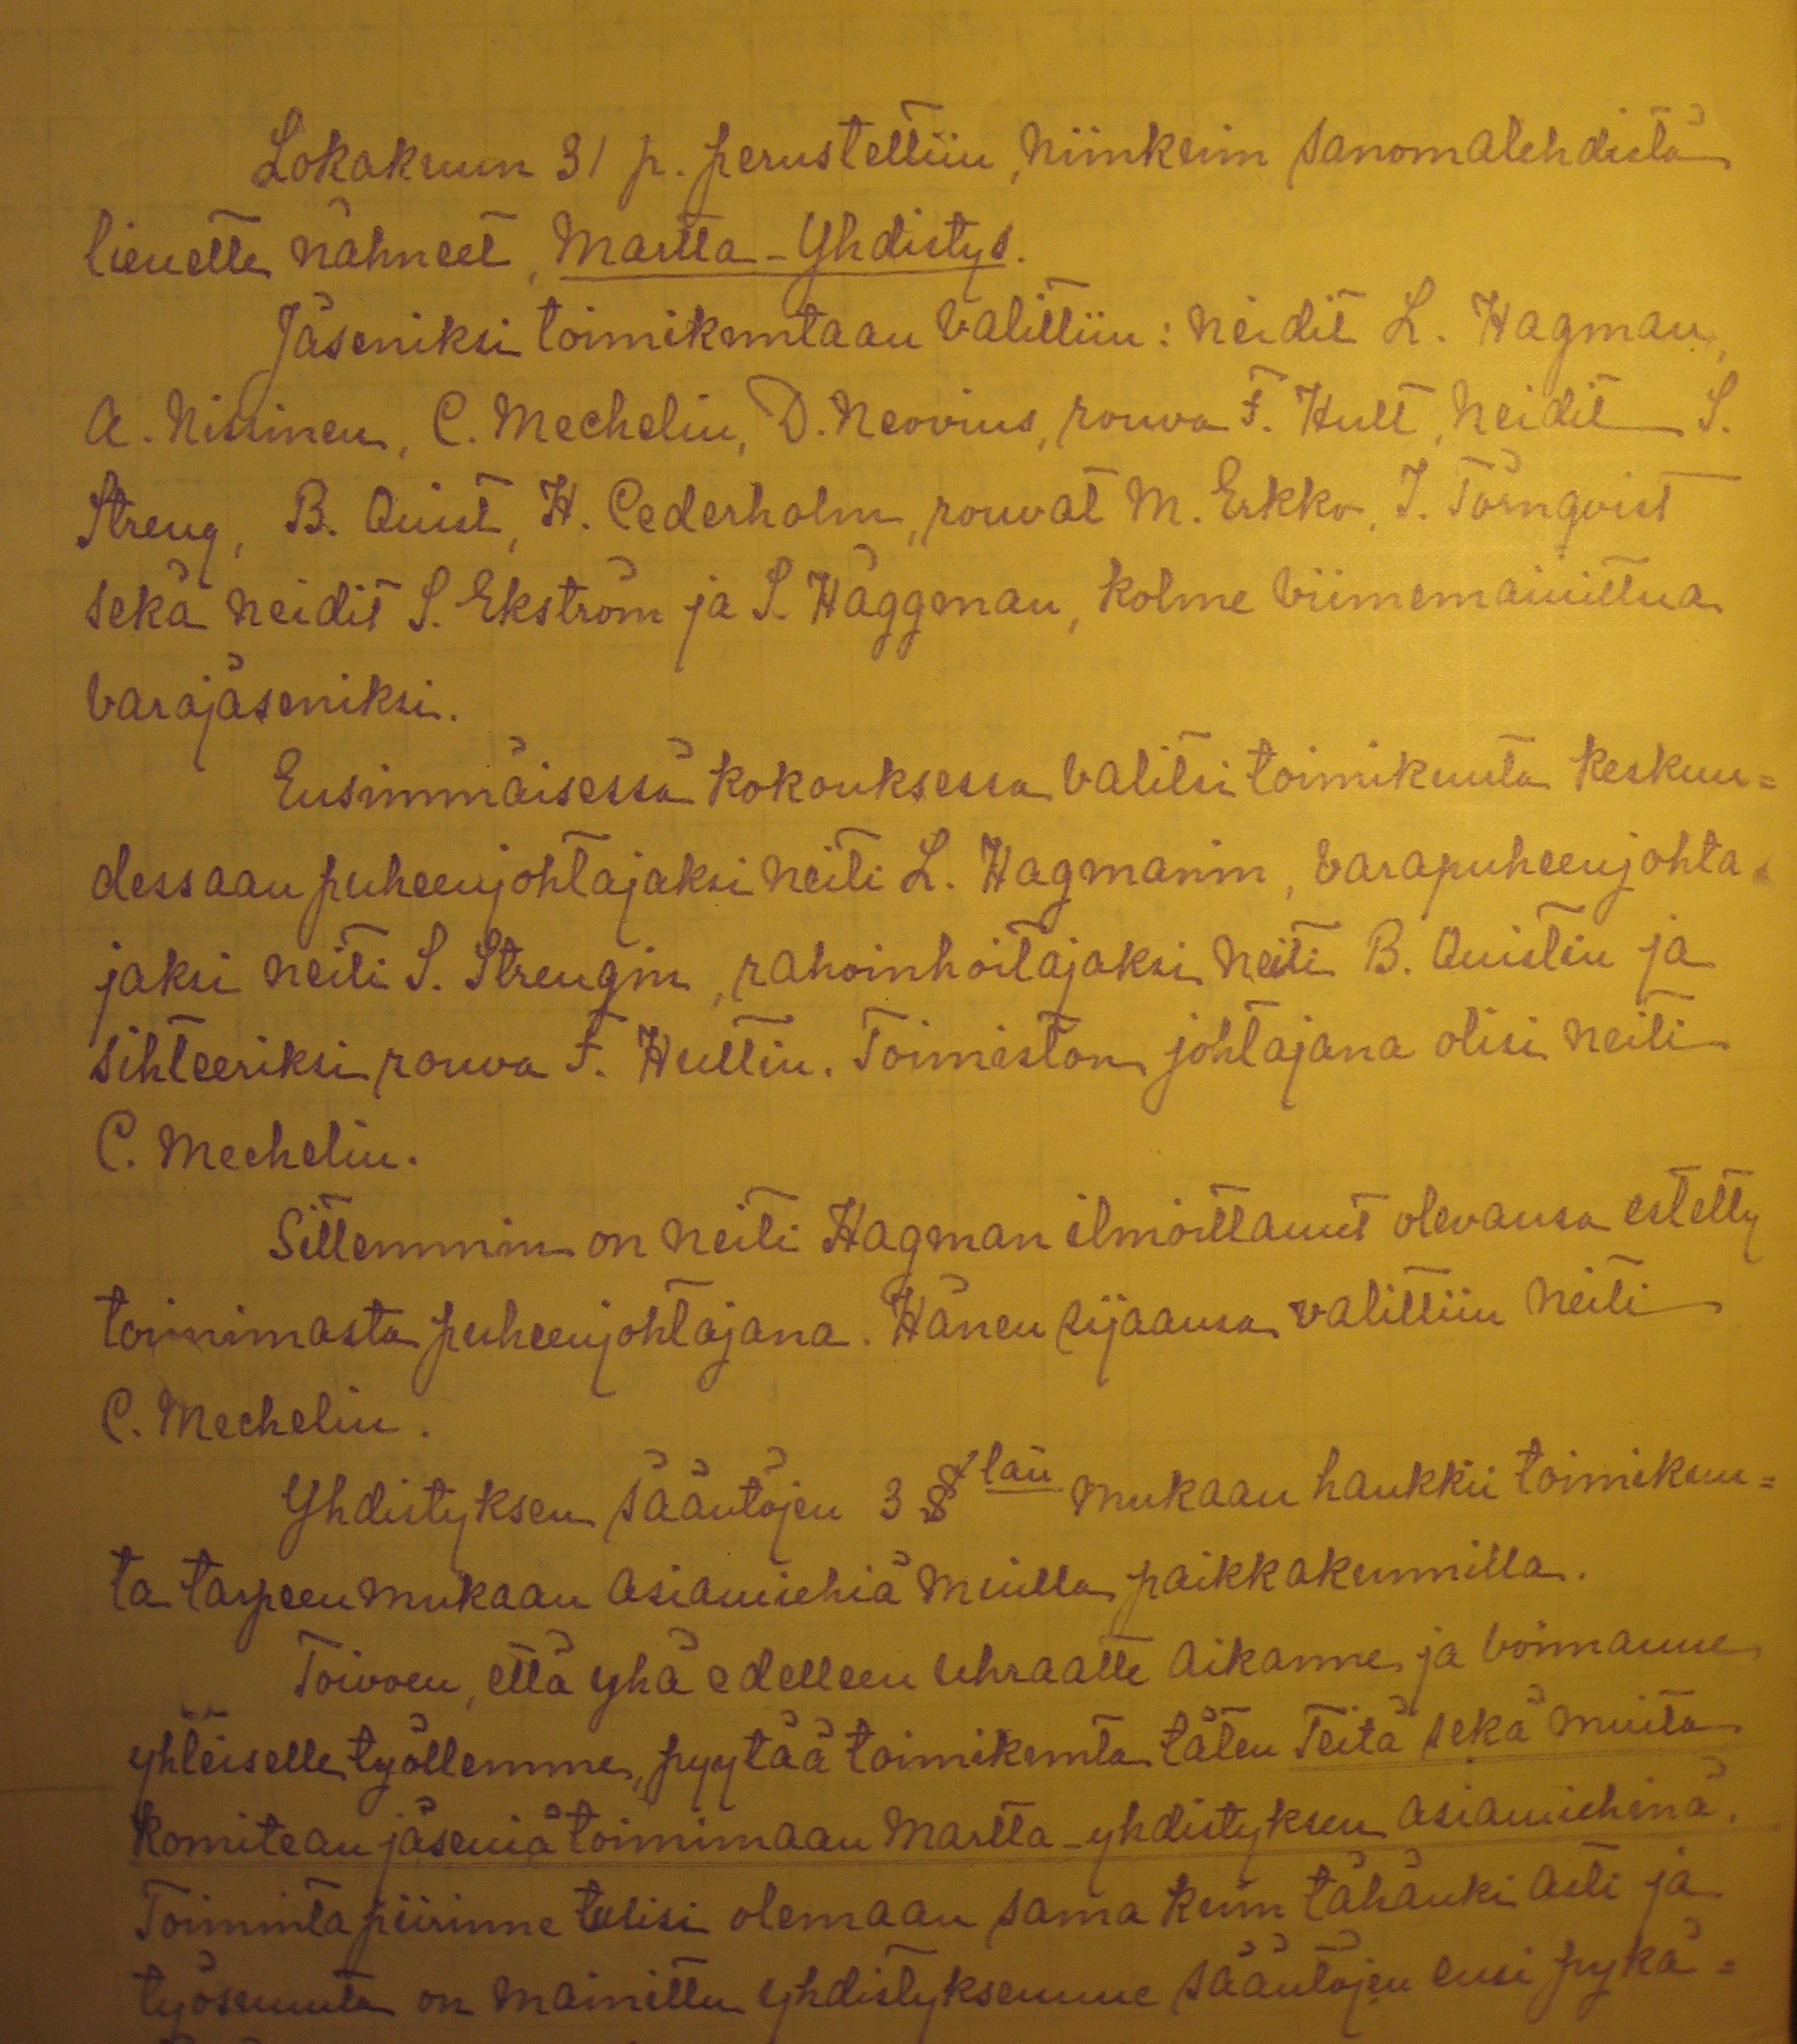 Lokakuun 31 p. perustettiin, niinkuin sanomalehdistä
lienette nähneet, Martta-Yhdistys.
Jäseniksi toimikuntaan valittiin: neidit L. Hagman,
A. Nissinen, C. Mechelin, D. Neovius, rouva F. Hult, neidit S.
Streng, B. Quist, H. Cederholm, rouvat M. Erkko, I. Törnqvist
sekä neidit S. Ekström ja S. Häggman, kolme viimemainittua
varajäseniksi.
Ensimmäisessä kokouksessa valitsi toimikunta keskuu=
dessaan puheenjohtajaksi neiti L. Hagmanin, varapuheenjohta=
jaksi neiti S. Strengin, rahoinhoitajaksi neiti B. Quistin ja
sihteeriksi rouva F. Hultin. Toimiston johtajana olisi neiti
C. Mechelin.
Sittemmin on neiti Hagman ilmoittanut olevansa estetty
toimimasta puheenjohtajana. Hänen sijaansa valittiin neiti
C. Mechelin.
Yhdistyksen sääntöjen 3 § län mukaan hankkii toimikun=
ta tarpeen mukaan asiamiehiä muilla paikkakunnilla.
Toivoen, että yhä edelleen uhraatte aikanne ja voimanne
yhteiselle työllemme, pyytää toimikunta täten Teitä sekä muita
komitean jäseniä toimimaan Martta-yhdistyksen asiamiehinä.
Toimintapiirinne tulisi olemaan sama kuin tähänki asti ja
työsuunta on mainittu yhdistyksemme sääntöjen ensi pykä=